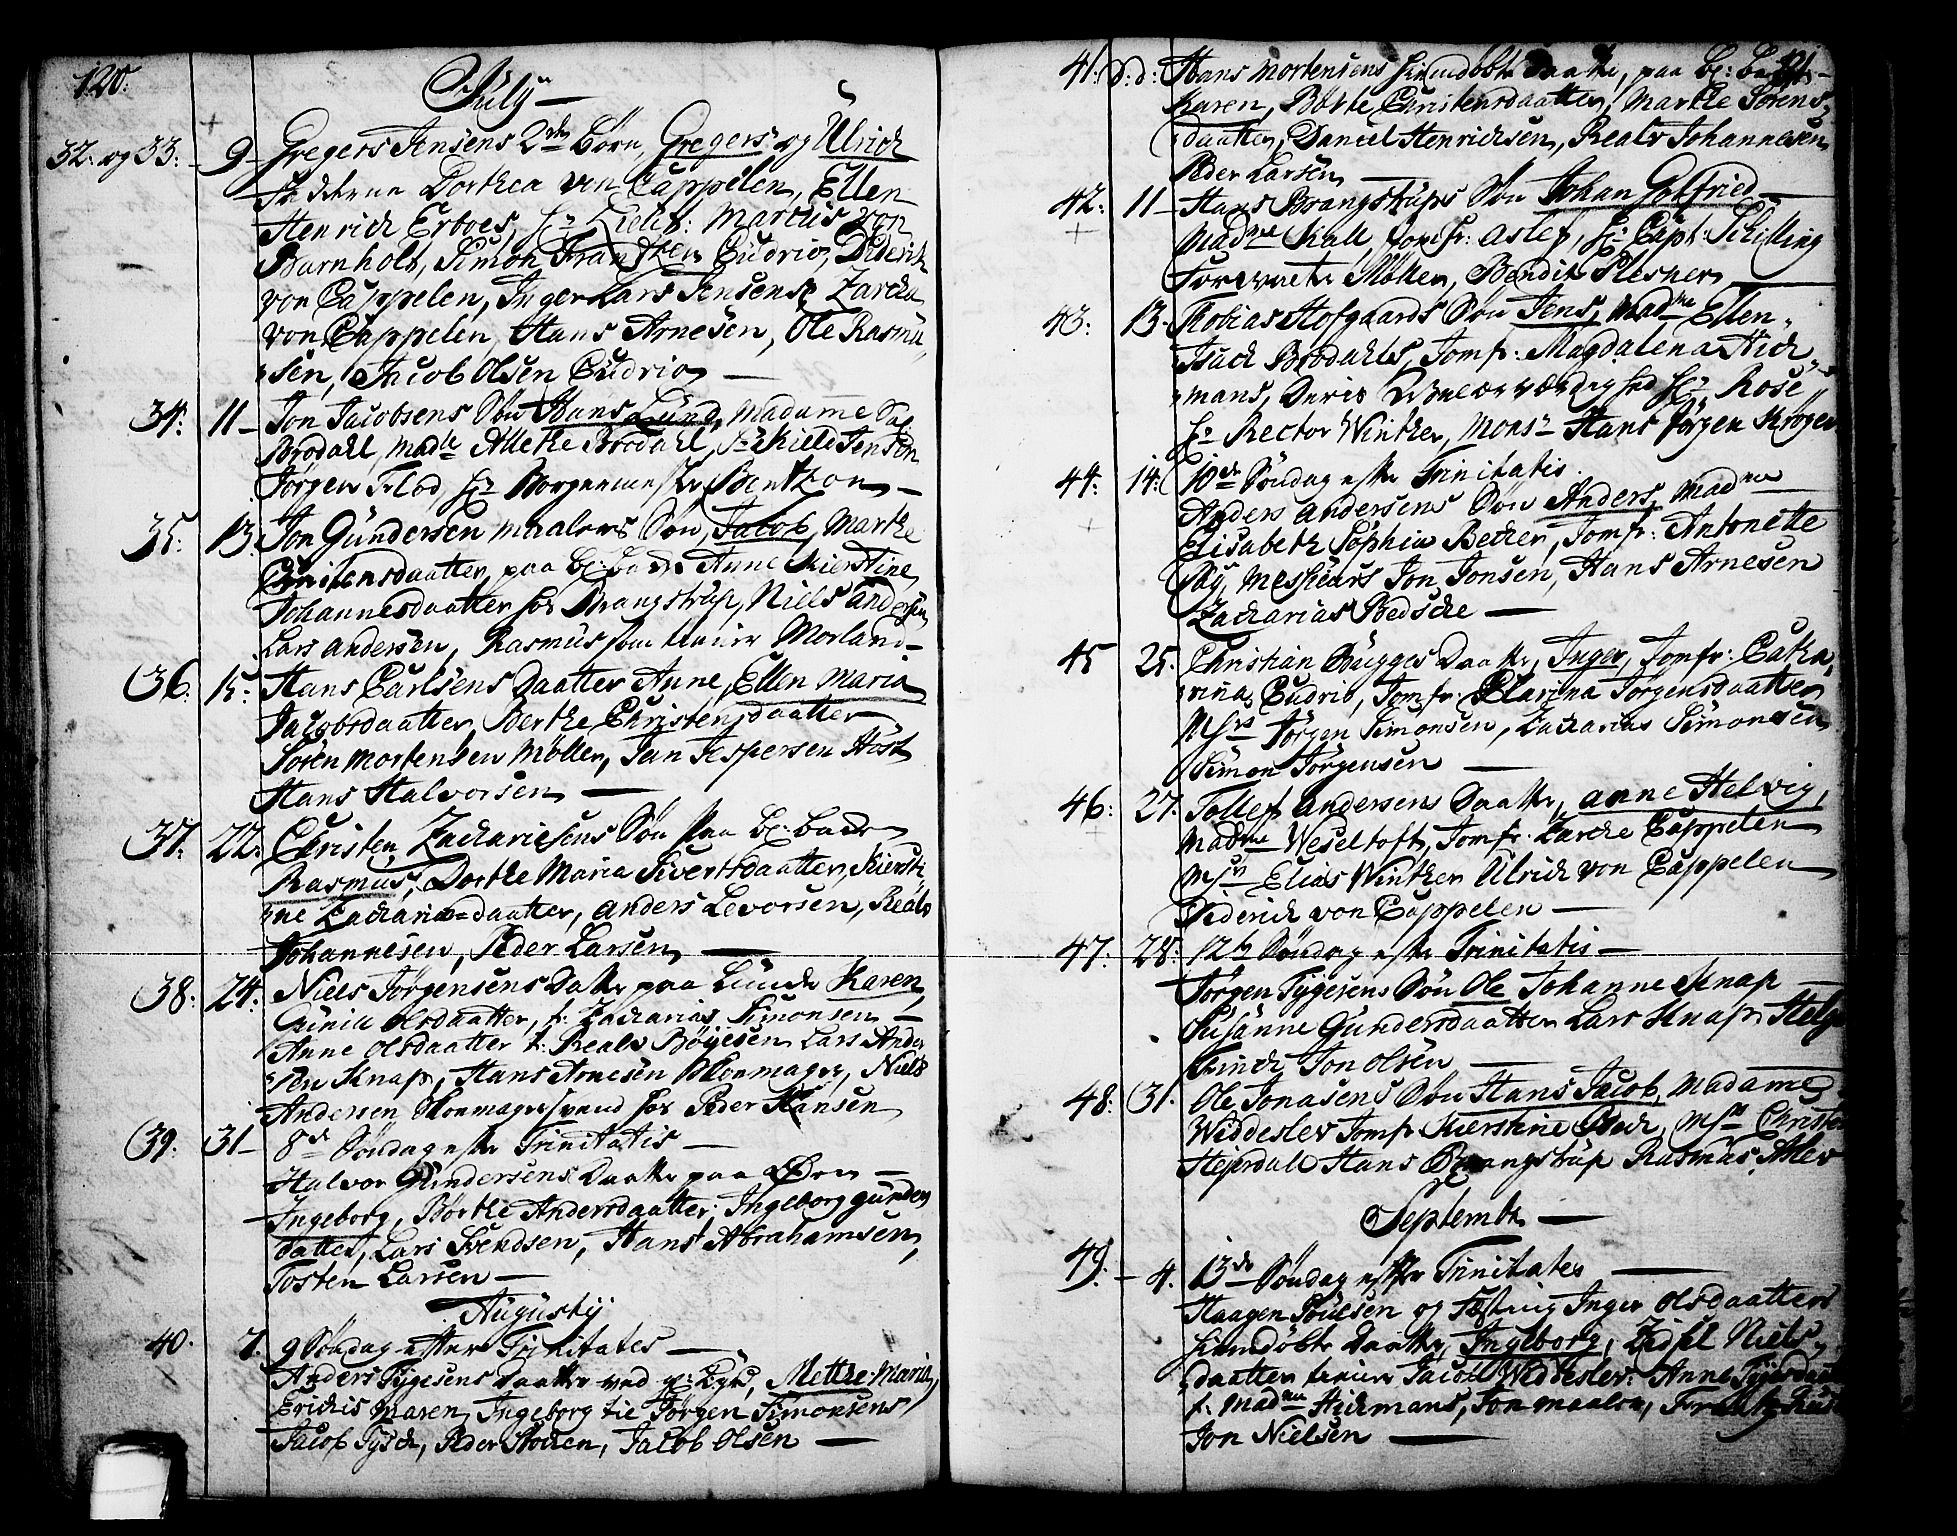 120.
July
32. og 33. 9 Gregers Jensens 2de Börn, Gregers og Ulrich
Fadderne Dorthea von Cappelen, Ellen
Henrich Erboes, Hr Lieut: Marcus von
Barnholt, Simon Frantzen Cudrio, Diderik
von Cappelen, Inger Lars Jensens, Zarcha
von Cappelen, Hans Arnesen, Ole Rasmu
sen, Jacob Olsen Cudrio
34. 11 Jon Jacobsens Sön Hans Lund, Madame Sal.
Brodahl, Madle Alethe Brodahl, Sr Kield Jensen
Jörgen Flod, Hr Borgermester Bentzon
35. 13 Jon Gundersen maalers Sön, Jacob, Marthe
Christensdaatter, paa Bl: Ba Anne Kierstine
Johannesdaatter hos Brangstrup, Niels Andersen
Lars Andersen, Rasmus som tiener Morland
36. 15. Hans Carlsens Daatter Anne, Ellen Maria
Jacobsdaatter, Berthe Christensdaatter
Sören Mortensen Möller, Jan Jespersen Höst
Hans Halvorsen
37. 22. Christen Zachariesens Sön paa Bl: Bade
Rasmus, Dorthe Maria Sivertsdaatter, Kiersti
ne Zacharie=daatter, Anders Levorsen, Reals
Johannesen, Peder Larsen
38. 24. Niels Jörgensens Datter paa Lunde Karen,
Gunild Olsdaatter, f. Zacharias Simonsen
Anne Olsdaatter t. Reals Böyesen Lars Ander
sen Knap, Hans Arnesen Skomager, Niels
Andersen Skomagersvend hos Peder Hansen
39. 31 8de Söndag efter Trinitatis
Halvor Gundersens Daatter paa Öen
Ingeborg, Börthe Andersdaatter, Ingeborg Gunders
datter, Lars Svendsen, Hans Abrahamsen,
Tosten Larsen
Augusty
40. 7. 9 Söndag efter Trinitates
Anders Tygesens Daatter ved Bye, Mette Maria,
Erichis Maren, Ingeborg til Jörgen Simonsens
Jacob Tysch, Peder Stochen, Jacob Olsen
121
41. d: d: Hans Mortensens hiemdöbte Daatter, paa Bl: Ba
Karen, Börte Christensdaatter, Marthe Sörens
daatter, Daniel Henrichsen, Reals Johannesen
Peder Larsen
42. 11 Hans Brangstrups Sön Johan Gotfried
Madme Kall, Jomfr: Aslef, Hr Capt: Schilling
Möller, Bendix Plesner
43. 13. Tobias Hofgaards Sön Jens, Madme Ellen
Isach Brodahls, Jomfr: Magdalena Hich
mans, Deris Velærværdighed Hr Rose
Hr Rector Winther, Monsr Hans Jörgen Kröger
44. 14. 10de Söndag efter Trinitatis.
Anders Andersens Sön Anders, Madme
Elisabeth Sophia Becker, Jomfr: Antonette
Say, Messieurs Jon Jonsen, Hans Arnesen
Zacharias Bedsche
45 25. Christian Bugges Daatter, Inger, Jomfr: Catha
rina Cudrio, Jomfr: Clarina Jörgensdaatter
Msrs Jörgen Simonsen, Zacharias Simonsen
Simon Jörgensen
46. 27. Tollef Andersens Daatter, Anne Helvig,
Madme Weseltoft, Jomfr. Zarche Cappelen
Msrs Elias Winther Ulrich von Cappelen
Diderich von Cappelen
47. 28. 12te Söndag efter Trinitatis
Jörgen Tygesens Sön Ole Johanne Knap
Susanne Gundersdaatter Lars Knap, Helge
Finch Jon Olsen
48. 31. Ole Jonasens Sön Hans Jacob, Madame
Widdeslev Jomfr Kierstine Munch, Msrs Christen
Hejerdal Hans Brangstrup Rasmus Alev
September
49. 4. 13de Söndag efter Trinitates
Haagen Poulsen og Inger Olsdaatters
hiemdöbte Daatter, Ingeborg, Zidsel Niels
daatter tiener Jacob Widdeslev: Anne Tygesdaat
f. Madme Hichmans, Jon maaler, Frantz
Jon Nielsen